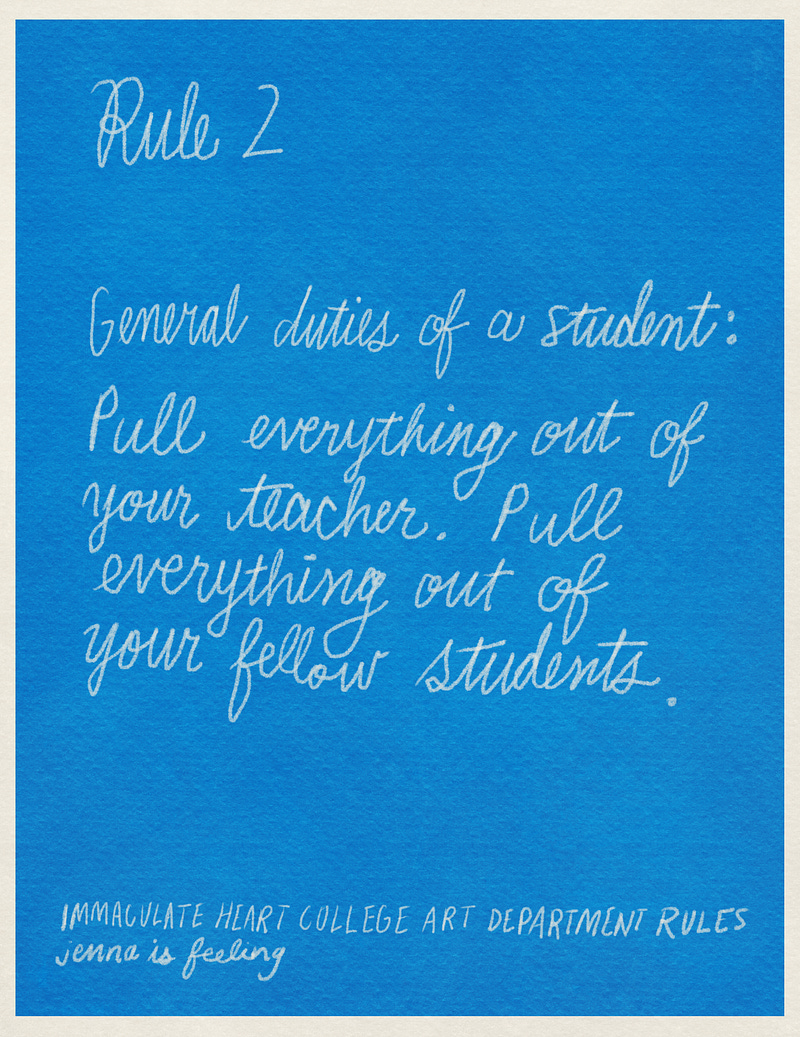 Rule 2
General duties of a student:
Pull everything out of
your teacher. Pull
everything out of
your fellow students.
IMMACULATE HEART COLLEGE ART DEPARTMENT RULES
jenna is feeling